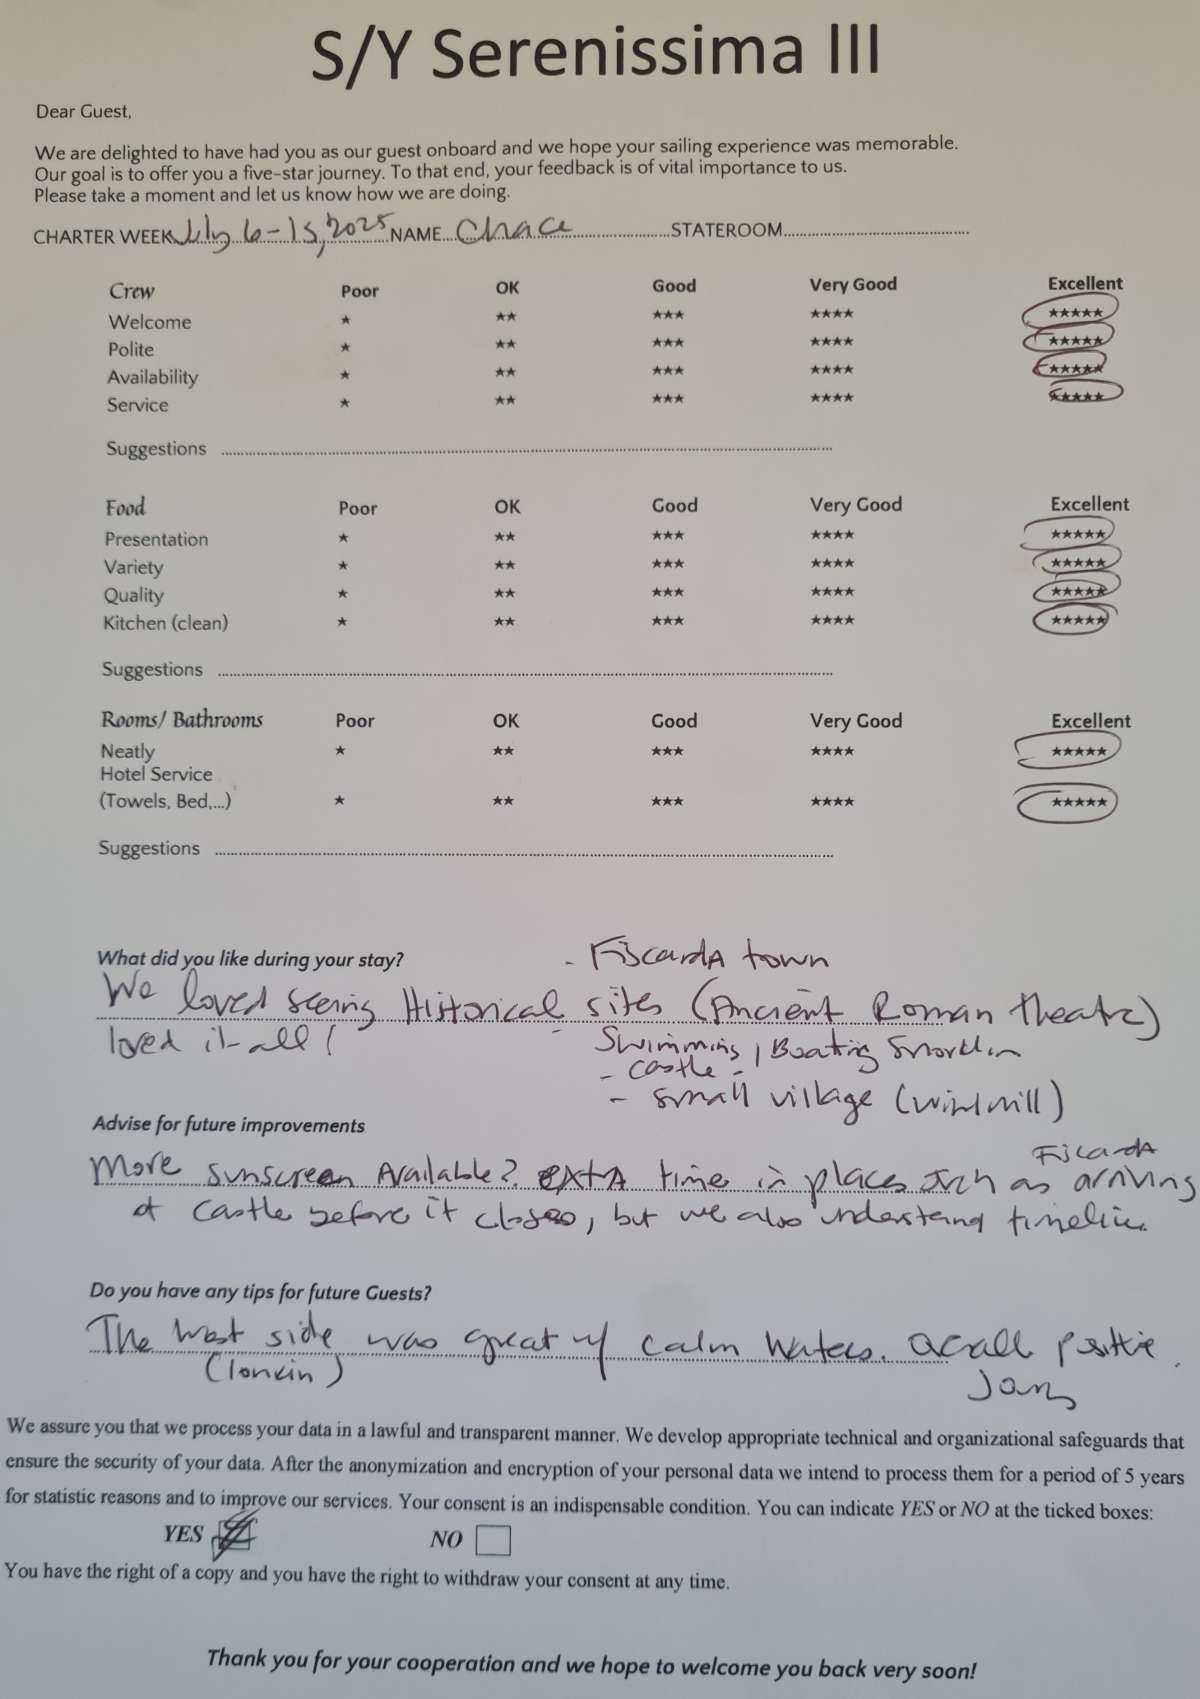 S/Y Serenissima III
Dear Guest,
We are delighted to have had you as our guest onboard and we hope your sailing experience was memorable.
Our goal is to offer you a five-star journey. To that end, your feedback is of vital importance to us.
Please take a moment and let us know how we are doing.
CHARTER WEEK July 6-15, 2025 NAME Chace STATEROOM
Crew Poor OK Good Very Good Excellent
Welcome ★ ★★ ★★★ ★★★★ ★★★★★
Polite ★ ★★ ★★★ ★★★★ ★★★★★
Availability ★ ★★ ★★★ ★★★★ ★★★★★
Service ★ ★★ ★★★ ★★★★ ★★★★★
Suggestions
Food Poor OK Good Very Good Excellent
Presentation ★ ★★ ★★★ ★★★★ ★★★★★
Variety ★ ★★ ★★★ ★★★★ ★★★★★
Quality ★ ★★ ★★★ ★★★★ ★★★★★
Kitchen (clean) ★ ★★ ★★★ ★★★★ ★★★★★
Suggestions
Rooms/ Bathrooms Poor OK Good Very Good Excellent
Neatly ★ ★★ ★★★ ★★★★ ★★★★★
Hotel Service
(Towels, Bed,...) ★ ★★ ★★★ ★★★★ ★★★★★
Suggestions
What did you like during your stay? - FiscardA town
We loved seeing Historical sites (Ancient Roman theatre)
loved it all! - Swimming, Boating Snorklin
- castle -
- small village (windmill)
Advise for future improvements
FiscardA
More sunscreen Available? extA time in places such as arriving
at castle before it closes, but we also understand timeline
Do you have any tips for future Guests?
The west side was great w/ calm waters.
We assure you that we process your data in a lawful and transparent manner. We develop appropriate technical and organizational safeguards that
ensure the security of your data. After the anonymization and encryption of your personal data we intend to process them for a period of 5 years
for statistic reasons and to improve our services. Your consent is an indispensable condition. You can indicate YES or NO at the ticked boxes:
YES NO
You have the right of a copy and you have the right to withdraw your consent at any time.
Thank you for your cooperation and we hope to welcome you back very soon!